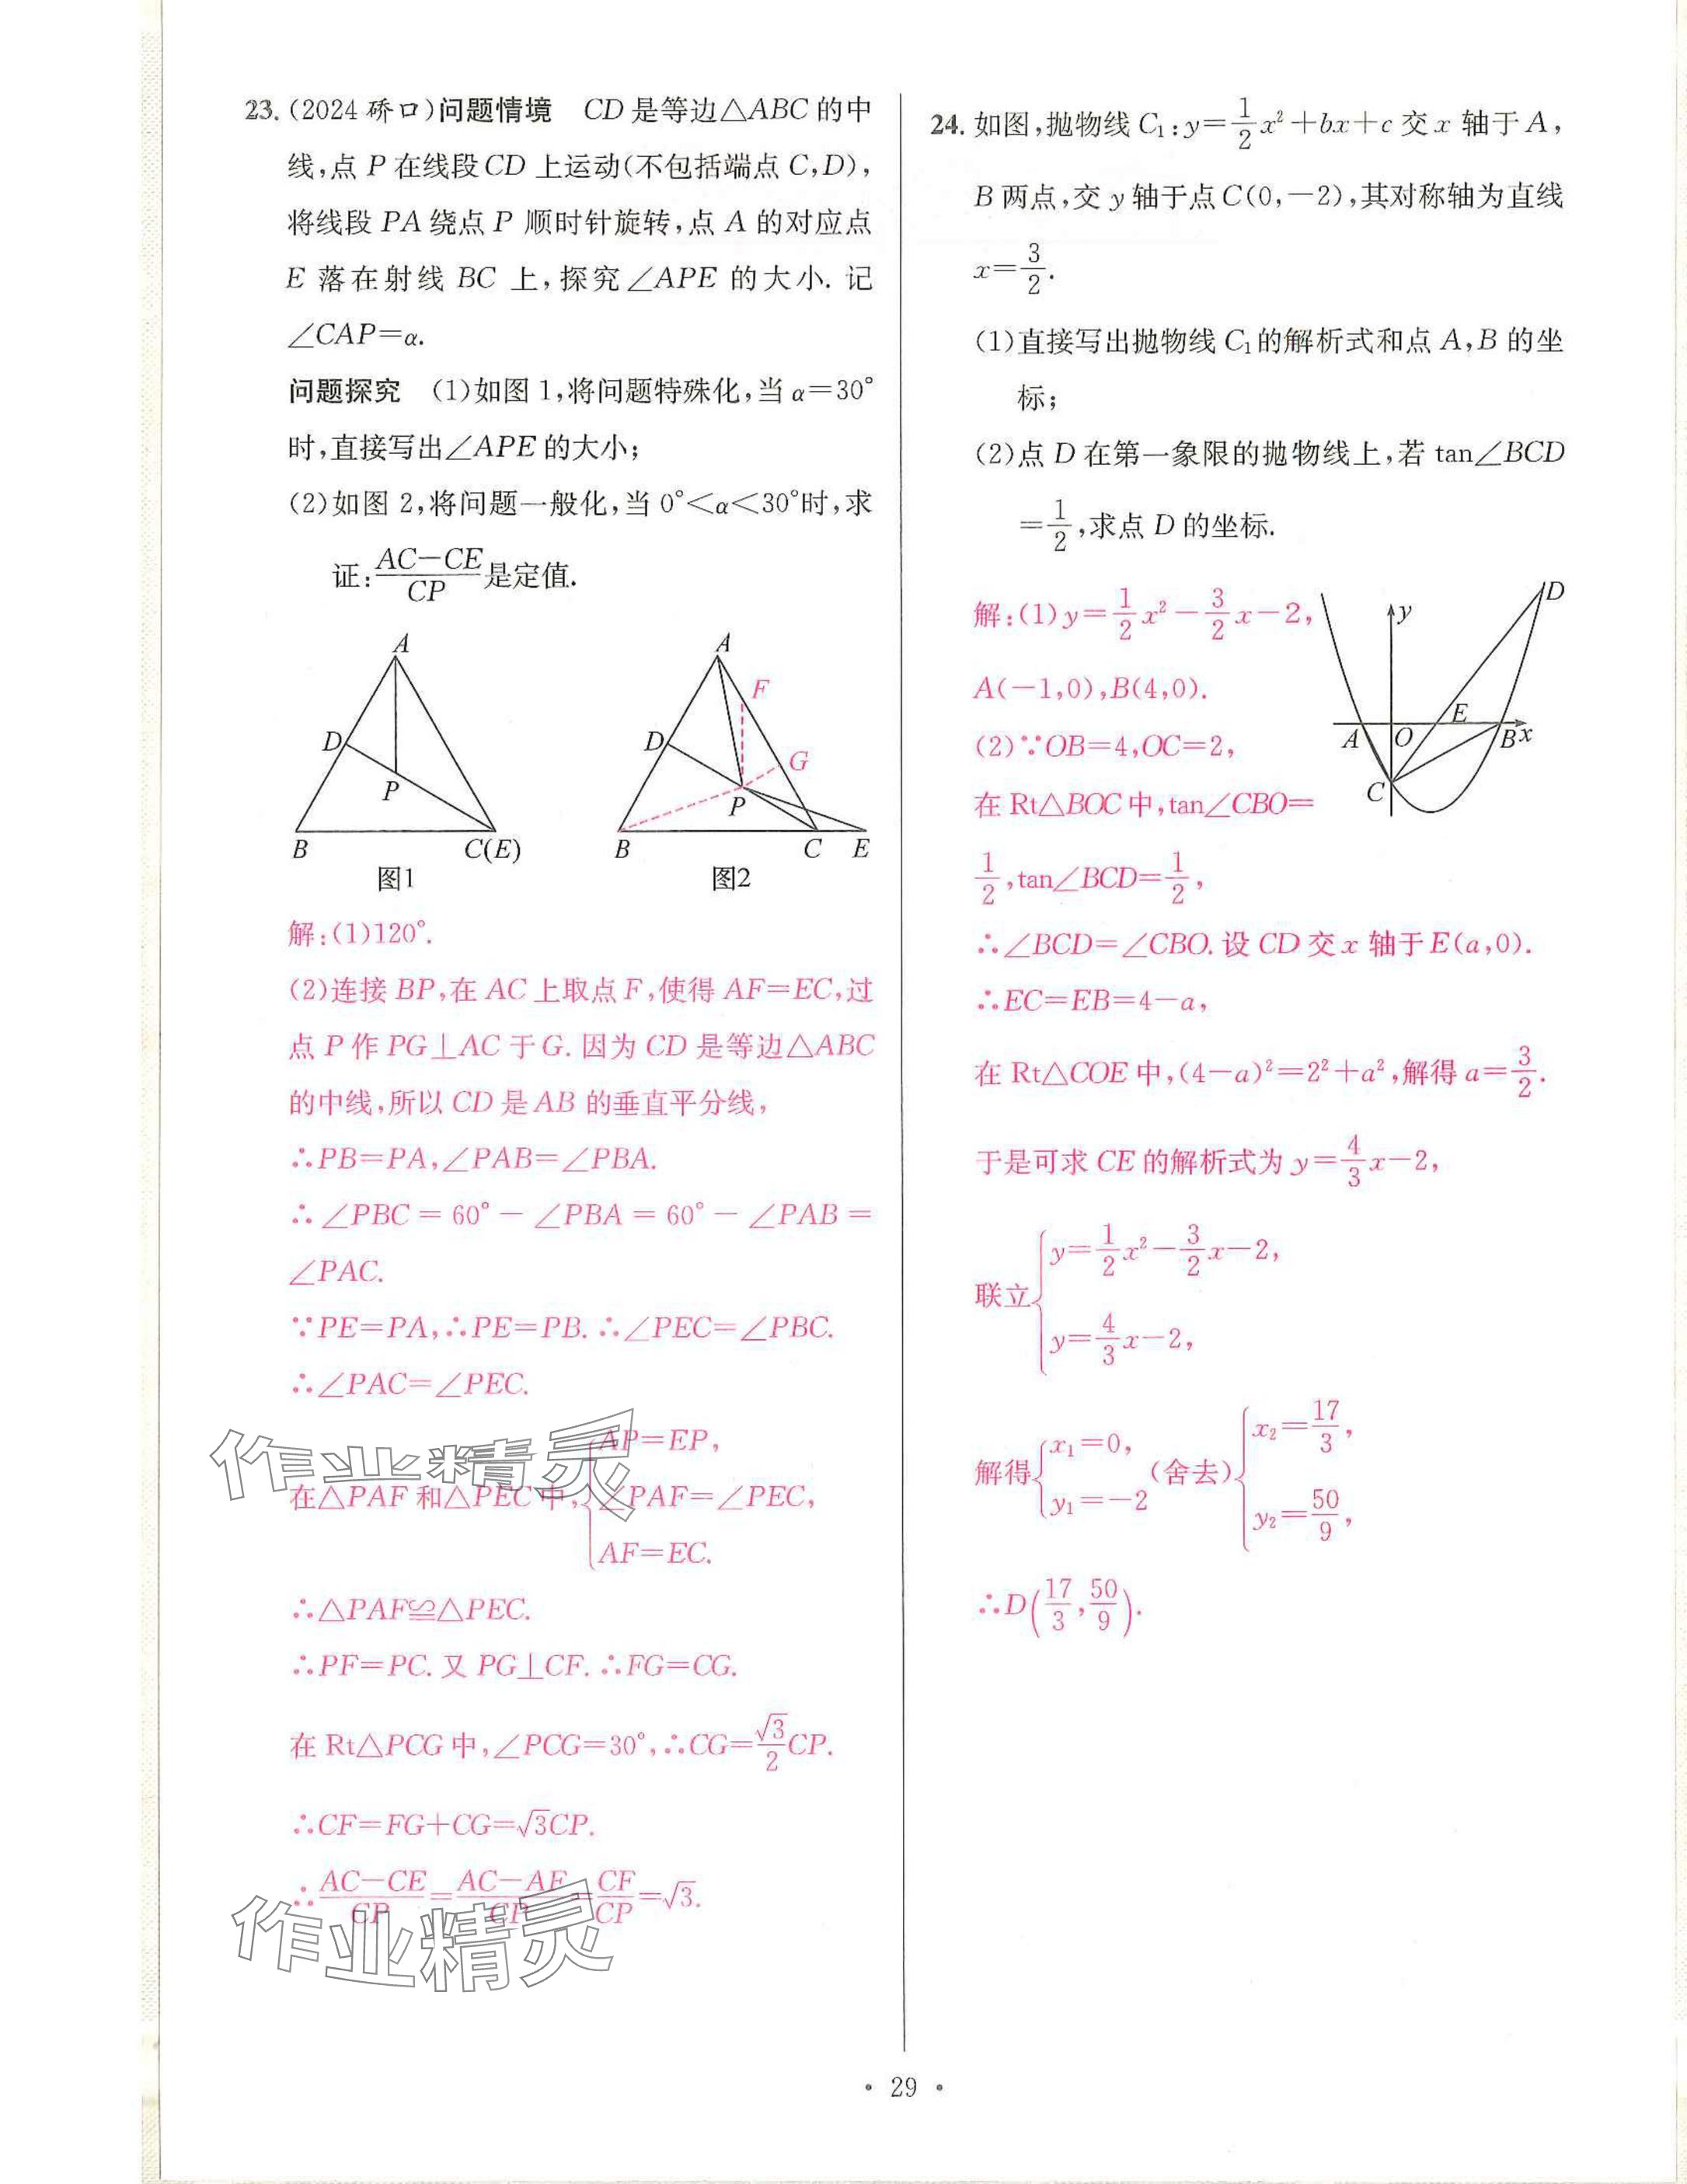 23. (2024 硚口)问题情境 CD 是等边△ABC 的中
线,点 P 在线段 CD 上运动(不包括端点 C,D),
将线段 PA 绕点 P 顺时针旋转,点 A 的对应点
E 落在射线 BC 上,探究∠APE 的大小. 记
∠CAP=α.
问题探究 (1)如图 1,将问题特殊化,当 α=30°
时,直接写出∠APE 的大小;
(2)如图 2,将问题一般化,当 0°<α<30°时,求
证:(AC−CE)/CP 是定值.
A
D
P
B
C(E)
图1
A
F
D
G
P
B
C
E
图2
解:(1)120°.
(2)连接 BP,在 AC 上取点 F,使得 AF=EC,过
点 P 作 PG⊥AC 于 G. 因为 CD 是等边△ABC
的中线,所以 CD 是 AB 的垂直平分线,
∴PB=PA,∠PAB=∠PBA.
∴∠PBC=60°−∠PBA=60°−∠PAB=
∠PAC.
∵PE=PA,∴PE=PB. ∴∠PEC=∠PBC.
∴∠PAC=∠PEC.
AP=EP,
在△PAF 和△PEC 中, ∠PAF=∠PEC,
AF=EC.
∴△PAF≌△PEC.
∴PF=PC. 又 PG⊥CF. ∴FG=CG.
在 Rt△PCG 中,∠PCG=30°,∴CG=√3/2 CP.
∴CF=FG+CG=√3CP.
∴(AC−CE)/CP=(AC−AF)/CP=CF/CP=√3.
作业精灵
作业精灵
24. 如图,抛物线 C₁:y=1/2x²+bx+c 交 x 轴于 A,
B 两点,交 y 轴于点 C(0,−2),其对称轴为直线
x=3/2.
(1)直接写出抛物线 C₁的解析式和点 A,B 的坐
标;
(2)点 D 在第一象限的抛物线上,若 tan∠BCD
=1/2,求点 D 的坐标.
D
y
E
A
O
B
x
C
解:(1)y=1/2x²−3/2x−2,
A(−1,0),B(4,0).
(2)∵OB=4,OC=2,
在 Rt△BOC 中,tan∠CBO=
1/2,tan∠BCD=1/2,
∴∠BCD=∠CBO. 设 CD 交 x 轴于 E(a,0).
∴EC=EB=4−a,
在 Rt△COE 中,(4−a)²=2²+a²,解得 a=3/2.
于是可求 CE 的解析式为 y=4/3x−2,
联立 { y=1/2x²−3/2x−2,
y=4/3x−2,
解得 { x₁=0, y₁=−2 (舍去) { x₂=17/3, y₂=50/9,
∴D(17/3,50/9).
• 29 •